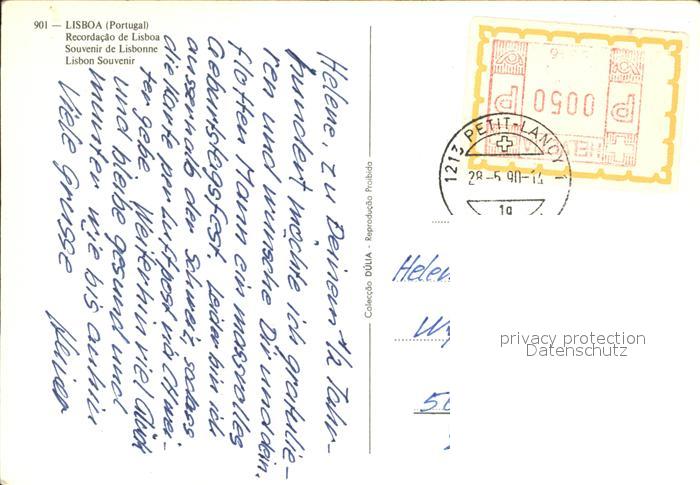 901 — LISBOA (Portugal)
Recordação de Lisboa
Souvenir de Lisbonne
Lisbon Souvenir
Helene, zu Deinem 1/2 Jahr-
hundert möchte ich gratulie-
ren und wünsche Dir und dein.
flotten Mann ein
Geburtstagsfest. Leider bin ich
ausserhalb der Schweiz sodass
die Karte per Luftpost
ter geht. Weiterhin viel Glück
und bleibe gesund und
munter wie bis anhin
Viele Grüsse
Colecção DÚLIA - Reprodução Proibida
0050
P P
HELVETIA
1213 PETIT-LANCY 1
28-5.90-14
1g
Helen
5.0
privacy protection
Datenschutz